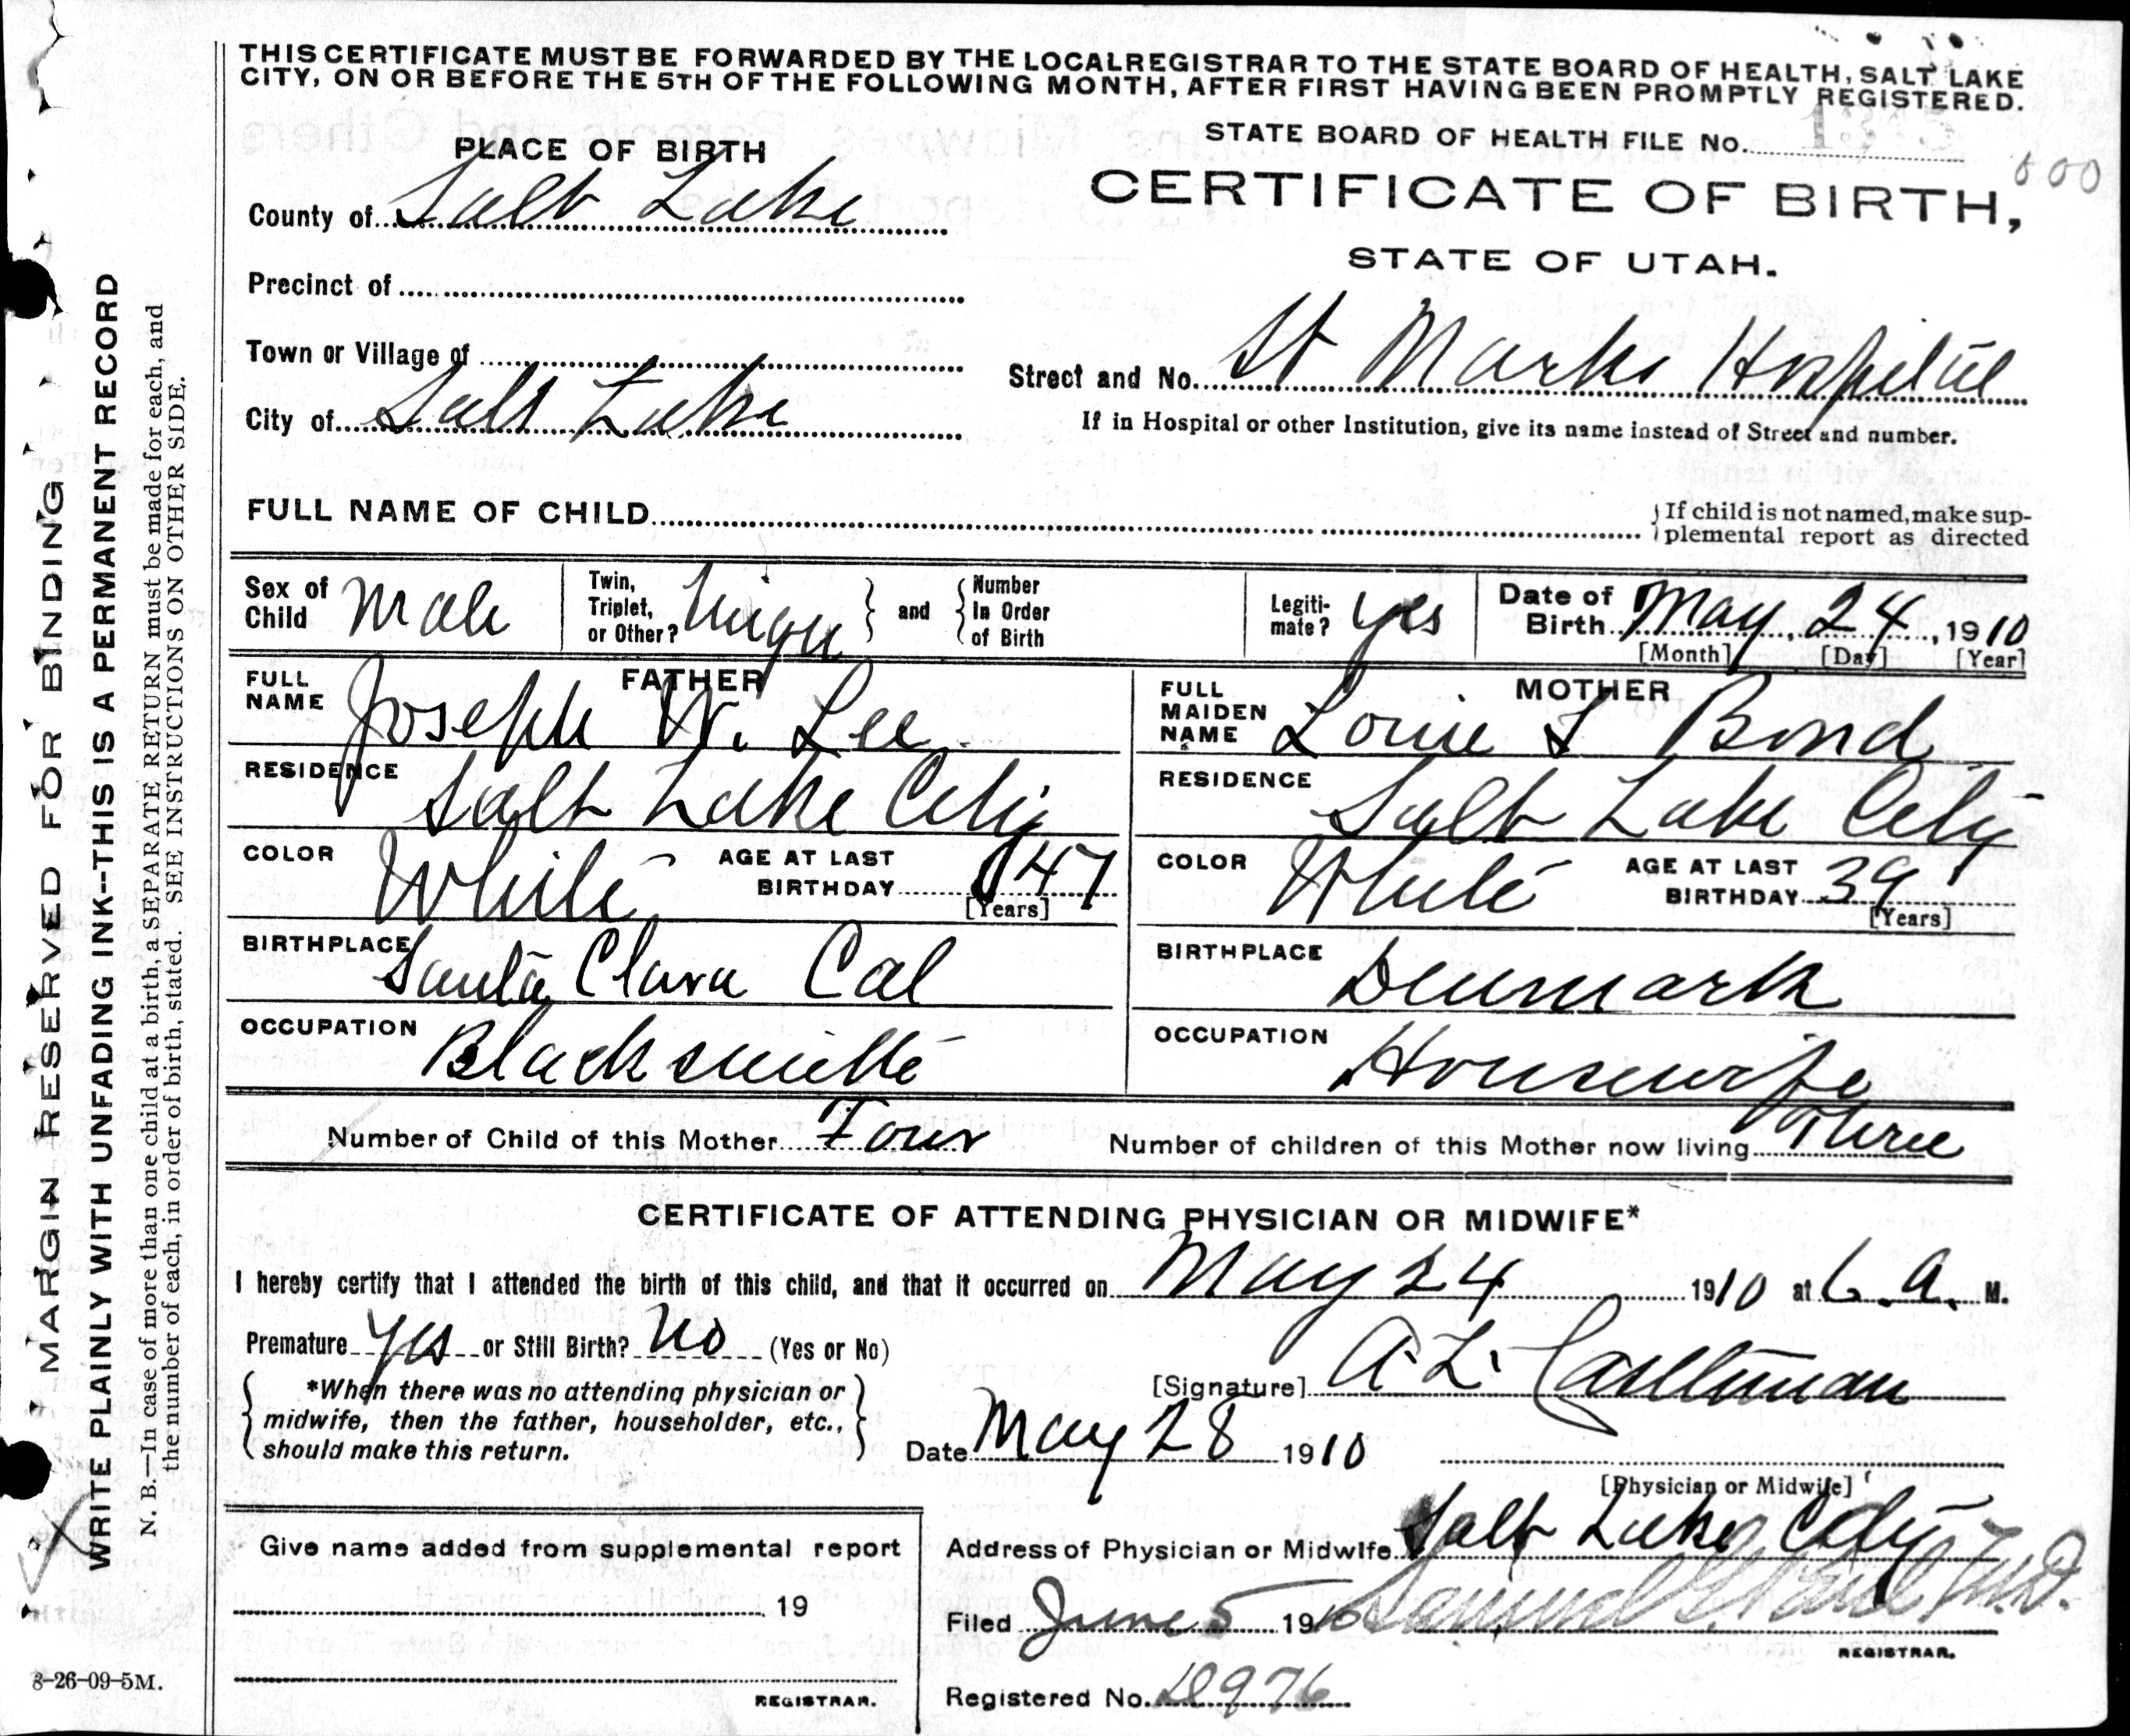 THIS CERTIFICATE MUST BE FORWARDED BY THE LOCAL REGISTRAR TO THE STATE BOARD OF HEALTH, SALT LAKE
CITY, ON OR BEFORE THE 5TH OF THE FOLLOWING MONTH, AFTER FIRST HAVING BEEN PROMPTLY REGISTERED.
STATE BOARD OF HEALTH FILE No.
000
PLACE OF BIRTH
CERTIFICATE OF BIRTH,
STATE OF UTAH.
County of Salt Lake
Precinct of
Town or Village of
Street and No. St Marks Hospital
City of Salt Lake
If in Hospital or other Institution, give its name instead of Street and number.
FULL NAME OF CHILD
If child is not named, make sup-
plemental report as directed
Sex of Child Male
Twin, Triplet, or Other?
and Number In Order of Birth
Legiti-mate? Yes
Date of Birth May 24, 1910
[Month] [Day] [Year]
FATHER
FULL NAME Joseph W. Lee
MOTHER
FULL MAIDEN NAME Louie S Bond
RESIDENCE Salt Lake City
RESIDENCE Salt Lake City
COLOR White AGE AT LAST BIRTHDAY 47 [Years]
COLOR White AGE AT LAST BIRTHDAY 39 [Years]
BIRTHPLACE Santa Clara Cal
BIRTHPLACE Denmark
OCCUPATION Blacksmith
OCCUPATION Housewife
Number of Child of this Mother Four
Number of children of this Mother now living Three
CERTIFICATE OF ATTENDING PHYSICIAN OR MIDWIFE*
I hereby certify that I attended the birth of this child, and that it occurred on May 24 1910 at 6. a. M.
Premature Yes or Still Birth? No (Yes or No)
*When there was no attending physician or
midwife, then the father, householder, etc.,
should make this return.
[Signature] A. L. Castleman
Date May 28 1910
[Physician or Midwife]
Give name added from supplemental report
19
REGISTRAR.
Address of Physician or Midwife Salt Lake City
Filed June 5 1910 Samuel G. Paul M.D.
REGISTRAR.
Registered No. D976
MARGIN RESERVED FOR BINDING
WRITE PLAINLY WITH UNFADING INK--THIS IS A PERMANENT RECORD
N. B.—In case of more than one child at a birth, a SEPARATE RETURN must be made for each, and
the number of each, in order of birth, stated. SEE INSTRUCTIONS ON OTHER SIDE.
8-26-09-5M.